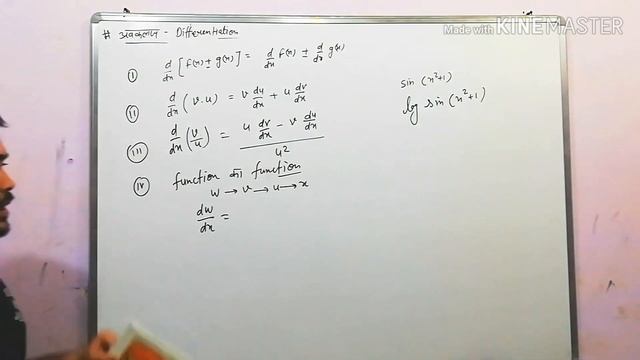 Made with KINEMASTER
# अवकलन - Differentiation
(i) d/dx [f(x) ± g(x)] = d/dx f(x) ± d/dx g(x)
(ii) d/dx (v.u) = v du/dx + u dv/dx
(iii) d/dx (v/u) = (u dv/dx - v du/dx) / u²
(iv) function का function
w → v → u → x
dw/dx =
sin (x²+1)
log sin (x²+1)